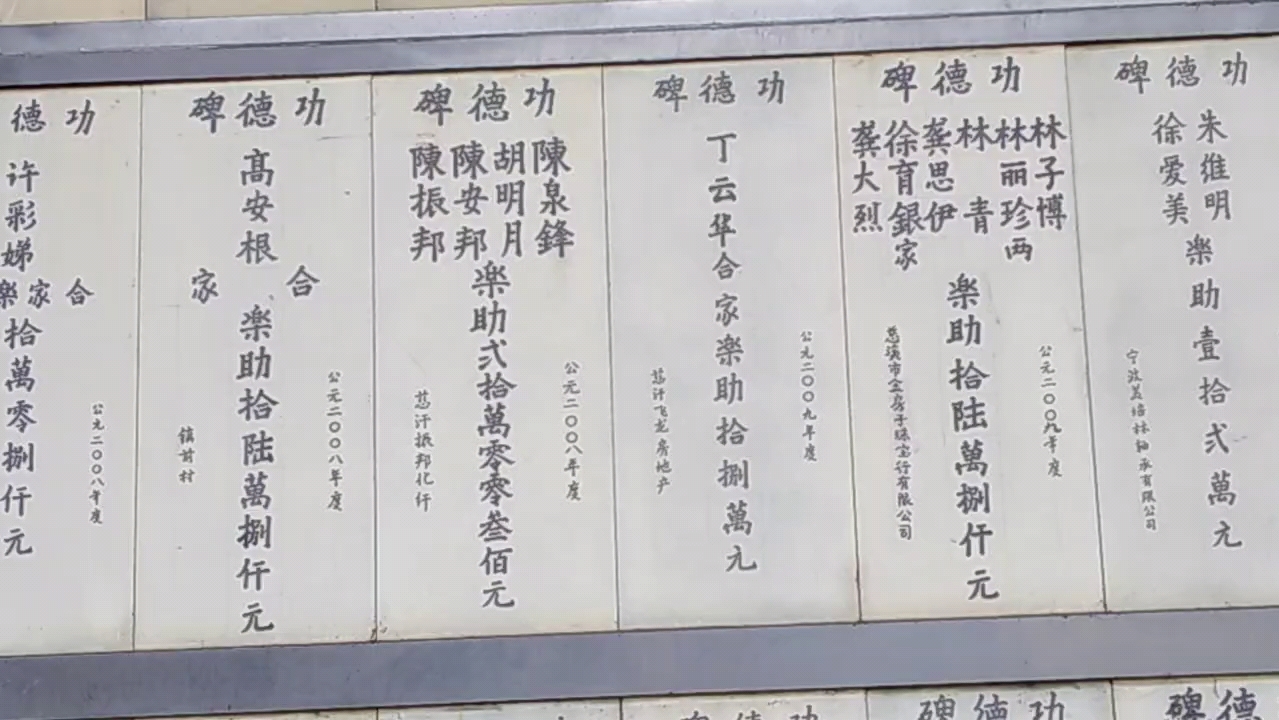 功德碑
朱维明
徐爱美
楽助壹拾弍萬元
宁波美培林轴承有限公司
功德碑
林子博
林丽珍两
林青
龚思伊
徐育銀家
龚大烈
楽助拾陆萬捌仟元
公元二00九年度
慈溪市金房子珠宝行有限公司
功德碑
丁云华合家楽助拾捌萬元
公元二00九年度
慈汗飞龙房地产
功德碑
陳泉鋒
胡明月
陳安邦
陳振邦
楽助弍拾萬零零叁佰元
公元二00八年度
慈汗振邦化纤
功德碑
髙安根
合家
楽助拾陆萬捌仟元
公元二00八年度
镇前村
功德
许彩娣
合家楽
拾萬零捌仟元
公元二00八年度
功德碑
功德碑
德碑